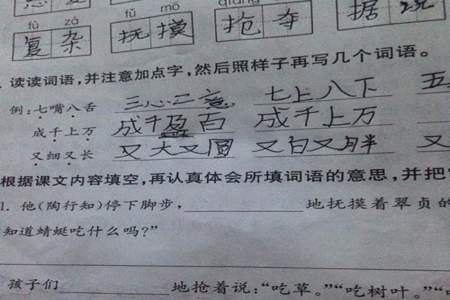 fǔ mō
复杂 抚摸 抢夺 据说
读读词语,并注意加点字,然后照样子再写几个词语。
例:七嘴八舌 三心二意 七上八下 五
成千上万 成千盈百 成千上万
又细又长 又大又圆 又白又胖 又
根据课文内容填空,再认真体会所填词语的意思,并把
1. 他(陶行知)停下脚步,____________地抚摸着翠贞的
知道蜻蜓吃什么吗?”
孩子们____________地抢着说:“吃草。”“吃树叶。”“